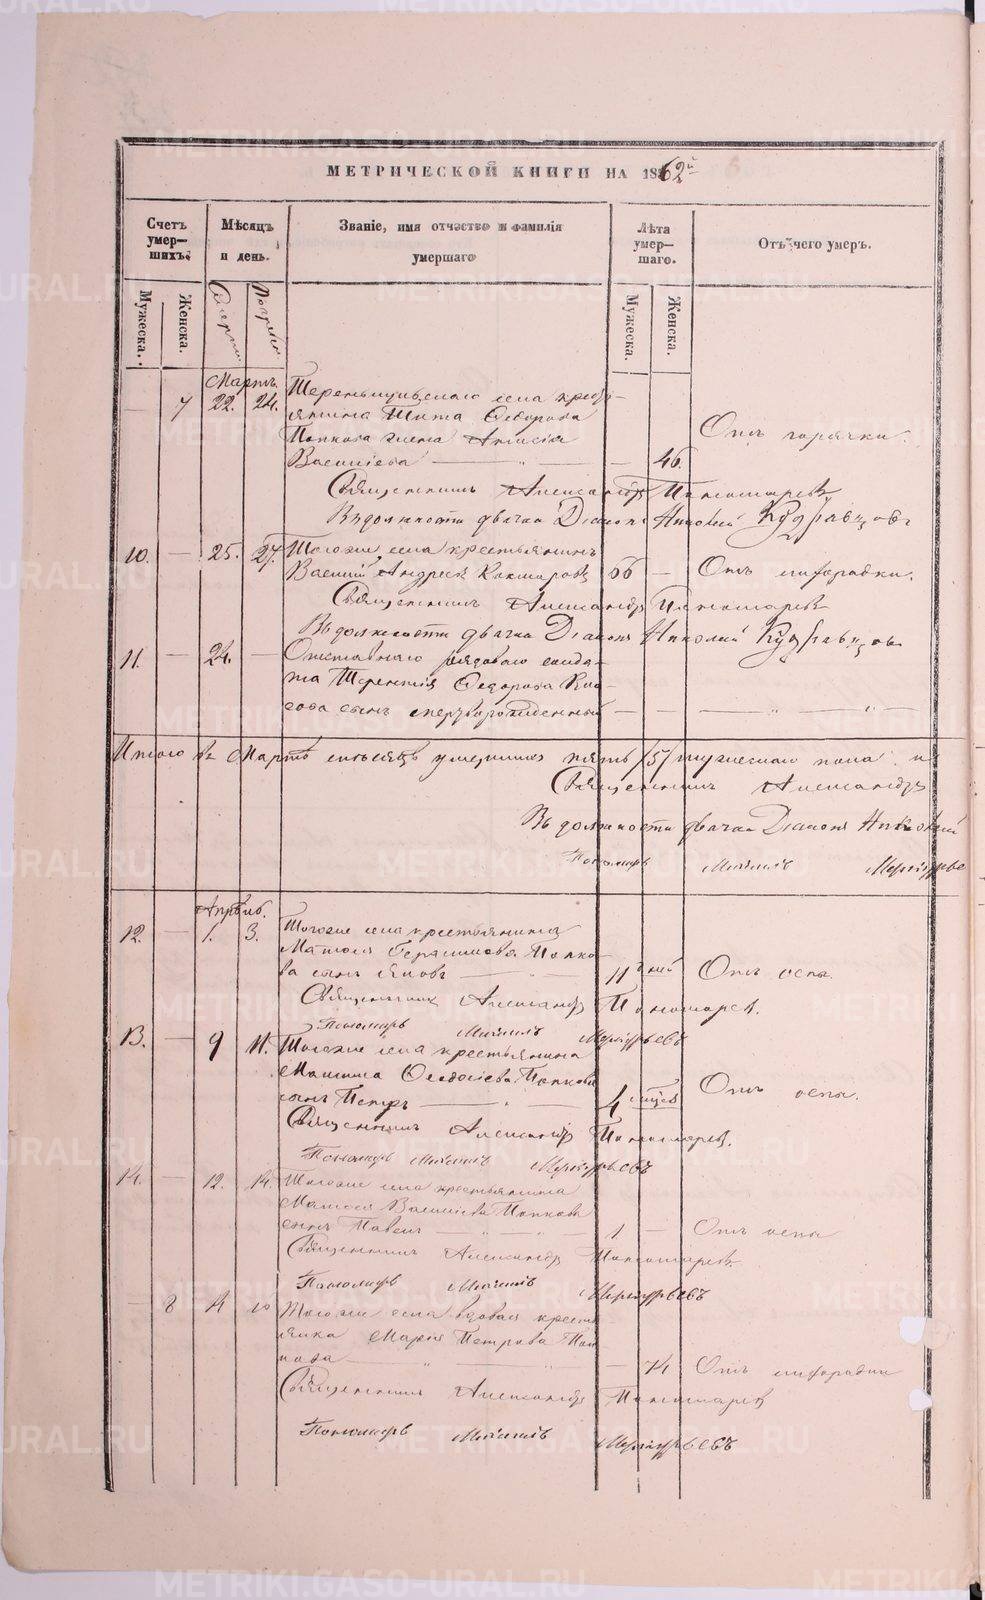 МЕТРИЧЕСКОЙ КНИГИ НА 1862й
Счетъ умершихъ.
Мѣсяцъ и день.
Званіе, имя отчество и фамилія умершаго
Лѣта умершаго.
Отъ чего умеръ.
Мужеска.
Женска.
Смерти
Погребе
Мужеска.
Женска.
Мартъ.
7 22. 24. села кресть-
янина Тита Ѳедорова
Попкова жена Отъ горячки.
Василіева 46.
Священникъ Александръ Пономаревъ
Въ должности дьячка Діаконъ Николай Кудрявцовъ
10. 25. 27. Тогоже села крестьянинъ
Василій Андреевъ 66 Отъ лихорадки.
Священникъ Александръ Пономаревъ
Въ должности дьячка Діаконъ Николай Кудрявцовъ
11. 24. Отставнаго рядоваго солда-
та Терентія Ѳедорова
сынъ мертворожденный
Итого въ Мартѣ месяцѣ умершихъ пять /5/ мужескаго пола и
Священникъ Александръ
Въ должности дьячка Діаконъ Николай
Пономарь Михаилъ Меркурьевъ
Апрѣль.
12. 1. 3. Тогоже села крестьянина
Матвея Герасимова Попко-
ва сынъ Яковъ 11 дней Отъ оспы.
Священникъ Александръ Пономаревъ.
Пономарь Михаилъ Меркурьевъ
13. 9 11. Тогоже села крестьянина
Максима Ѳеодосіева Попкова
сынъ Петръ 4 месяцев Отъ оспы.
Священникъ Александръ Пономаревъ.
Пономарь Михаилъ Меркурьевъ
14. 12. 14. Тогоже села крестьянина
Матвея Василіева Попкова
сынъ Павелъ 1 Отъ оспы
Священникъ Александръ Пономаревъ
Пономарь Михаилъ Меркурьевъ
8 Тогоже села вдовая кресть-
янка Марія Петрова Поп-
кова 74 Отъ лихорадки
Священникъ Александръ Пономаревъ
Пономарь Михаилъ Меркурьевъ
METRIKI.GASO-URAL.RU